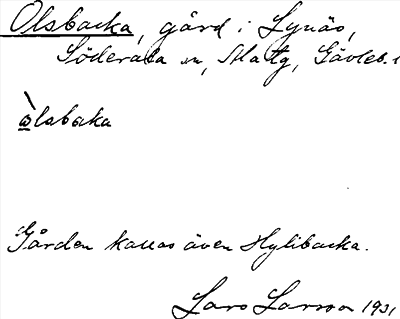 Olsbacka, gård i Lynäs,
Söderala sn, Ala tg, Gävleb. l
ɷ̀lsbaka
Gården kallas även Hylibacka.
Lars Larsson 1931